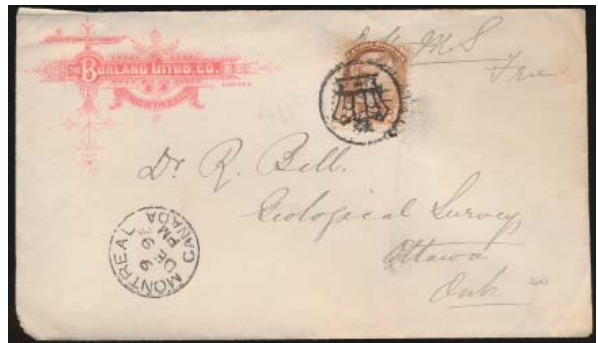 THE BURLAND LITHO. CO.
LIMITED
MONTREAL
O.H.M.S
Free
Dr. R. Bell.
Geological Survey
Ottawa
Ont
20
MONTREAL CANADA
PM
DE 6